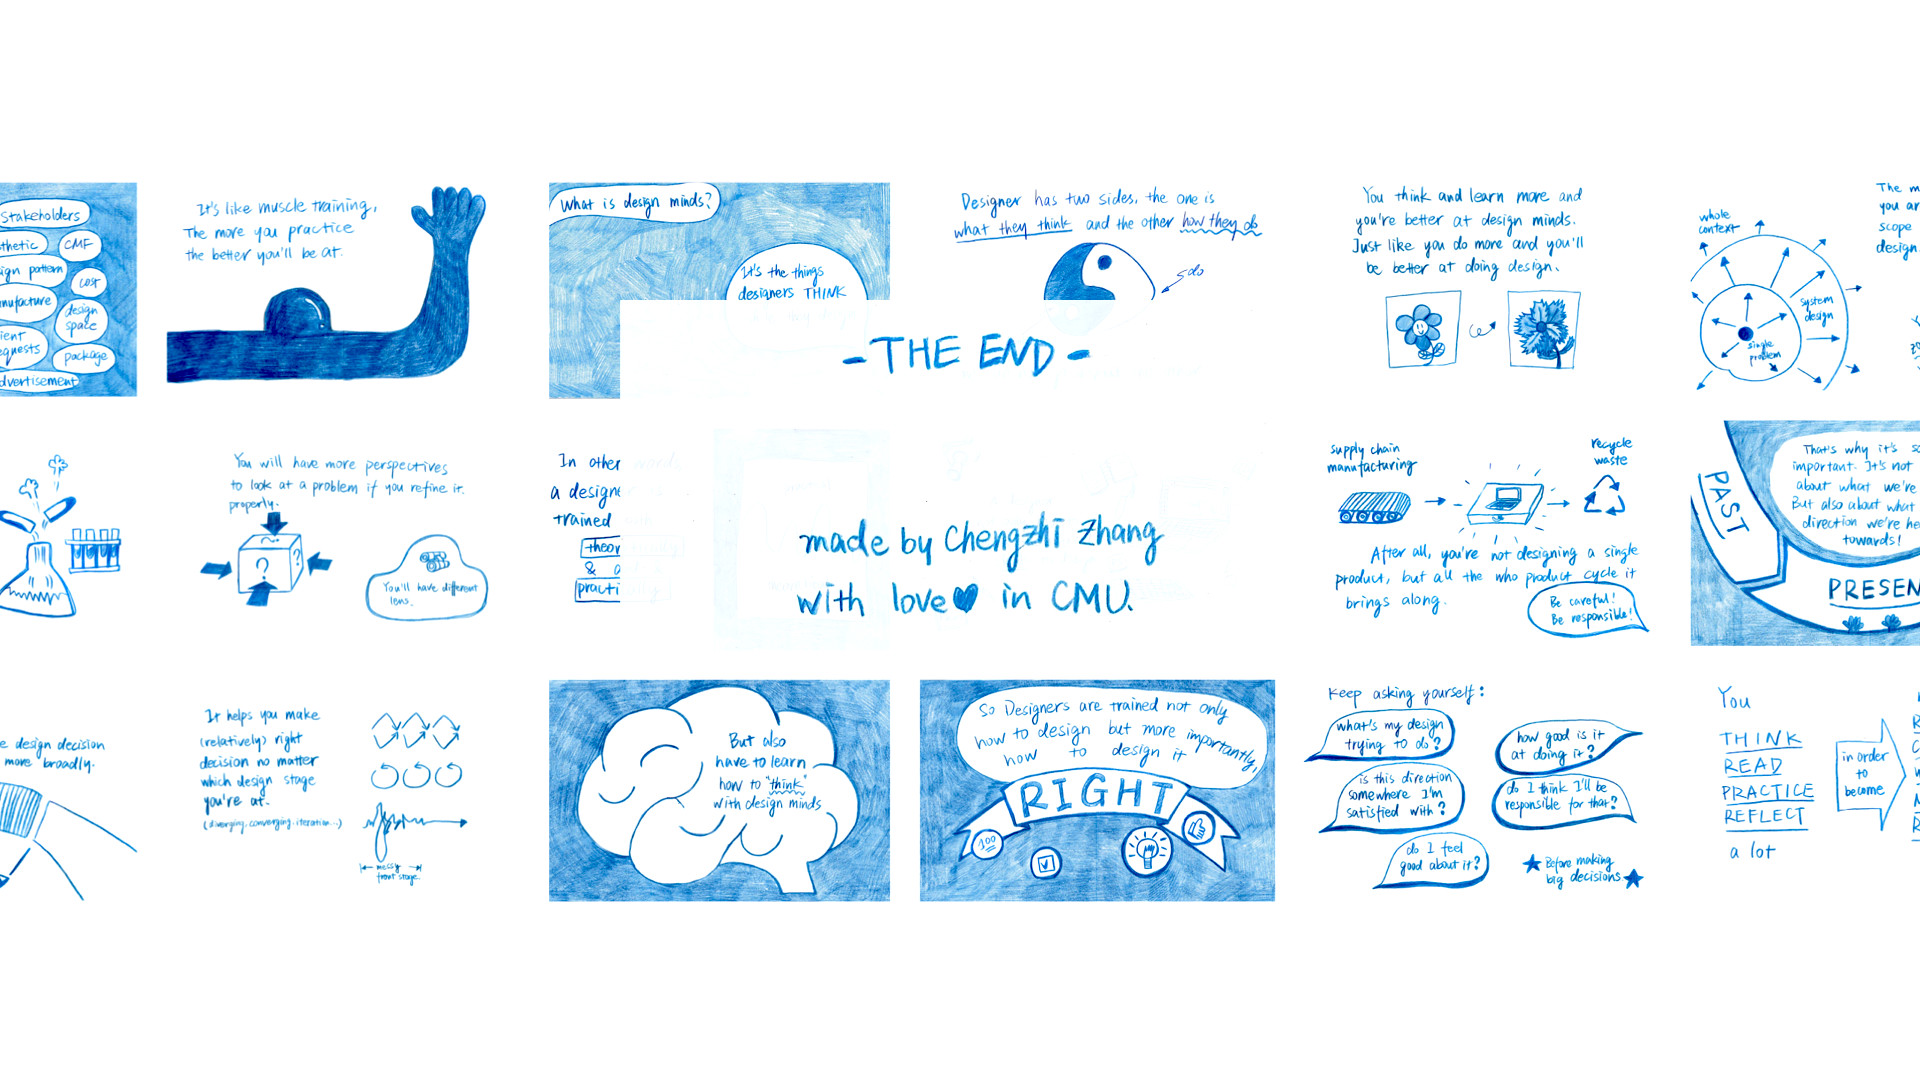 Stakeholders
CMF
cost
design
space
package
It's like muscle training,
The more you practice
the better you'll be at.
What is design minds?
It's the things
designers THINK
Designer has two sides, the one is
what they think and the other how they do
You think and learn more and
you're better at design minds.
Just like you do more and you'll
be better at doing design.
whole
context
system
design
single
problem
The
you
scope
design.
- THE END -
made by Chengzhi Zhang
with love in CMU.
You will have more perspectives
to look at a problem if you refine it
properly.
?
?
You'll have different
lens.
In other
a
trained
&
supply chain
manufacturing
recycle
waste
After all, you're not designing a single
product, but all the who product cycle it
brings along.
Be careful!
Be responsible!
PAST
That's why it's
important. It's not
about what we're
But also about what
direction we're
towards!
design decision
more broadly.
It helps you make
(relatively) right
decision no matter
which design stage
you're at.
(diverging, converging, iteration...)
messy
front stage
But also
have to learn
how to "think"
with design minds
So Designers are trained not only
how to design but more importantly,
how to design it
RIGHT
100
Keep asking yourself:
what's my design
trying to do?
how good is it
at doing it?
is this direction
somewhere I'm
satisfied with?
do I think I'll be
responsible for that?
do I feel
good about it?
Before making
big decisions
You
THINK
READ
PRACTICE
REFLECT
a lot
in order
to
become